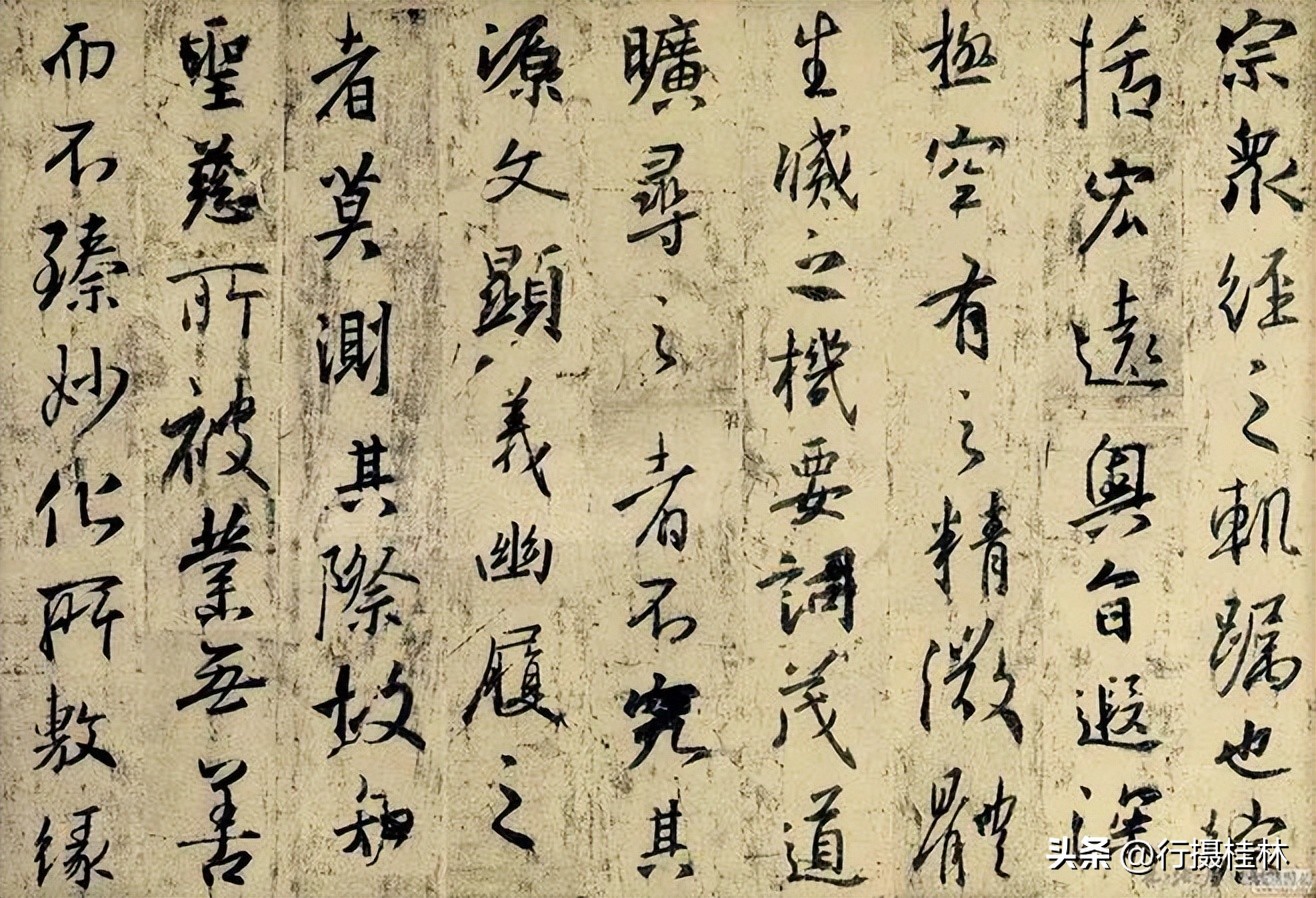 宗眾經之軌躅也綜
括宏遠奧旨遐深
極空有之精微體
生滅之機要詞茂道
曠尋之者不究其
源文顯義幽履之
者莫測其際故知
聖慈所被業無善
而不臻妙化所敷緣
头条 @行摄桂林